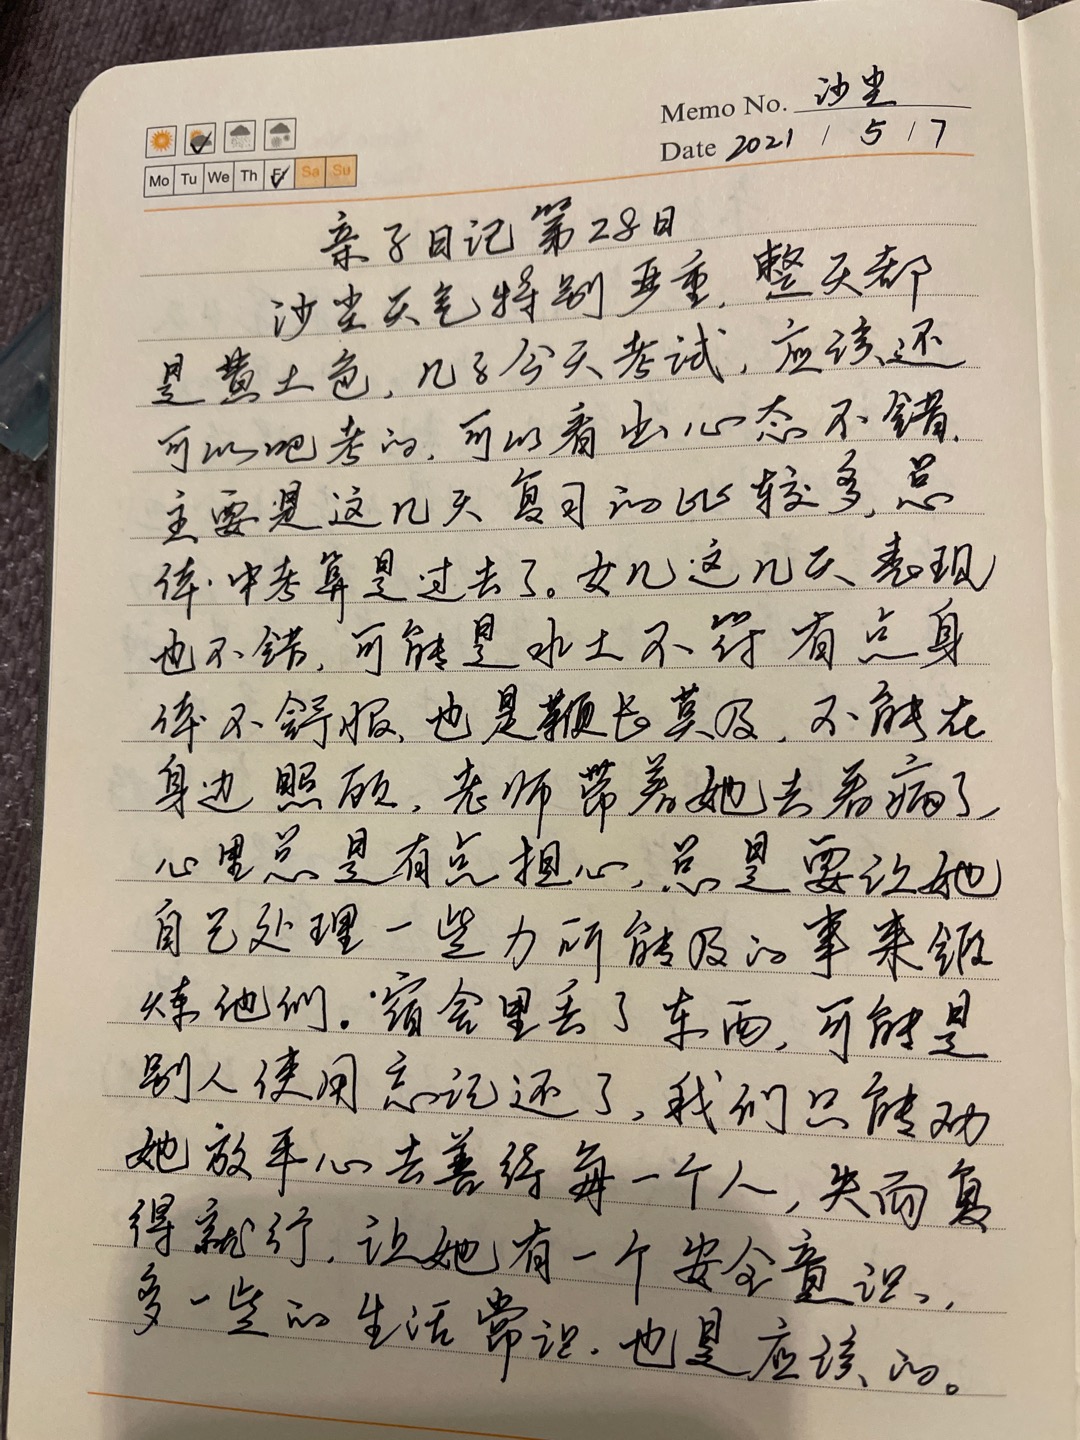 Memo No. 沙尘
Date 2021 / 5 / 7
Mo Tu We Th Fr Sa Su
亲子日记第28日
沙尘天气特别严重，整天都
是黄土色，儿子今天考试，应该还
可以吧考的，可以看出心态不错，
主要是这几天复习的比较多，总
体中考算是过去了。女儿这几天表现
也不错，可能是水土不符有点身
体不舒服，也是鞭长莫及，不能在
身边照顾，老师带着她去看病了，
心里总是有点担心，总是要让她
自己处理一些力所能及的事来锻
炼他们。宿舍里丢了东西，可能是
别人使用忘记还了，我们只能劝
她放平心去善待每一个人，失而复
得就行，让她有一个安全意识，
多一些的生活常识，也是应该的。